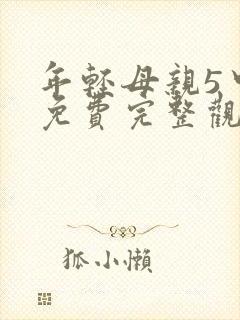 年輕母親5
免費完整觀
狐小懶